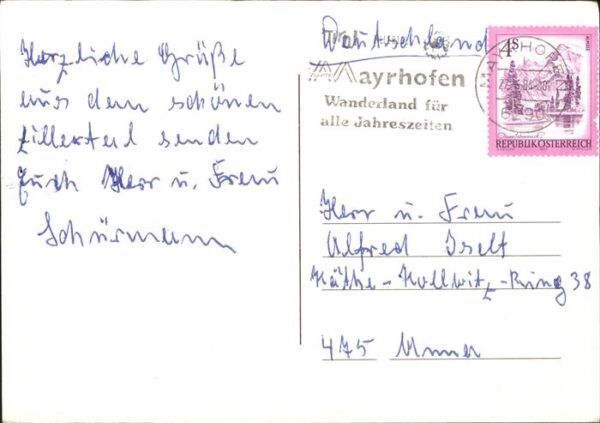 Herzliche Grüße
aus dem schönen
Zillertal senden
Euch Herr u. Frau
Schürmann
Deutschland
Tirol
Mayrhofen
Wanderland für
alle Jahreszeiten
4S
REPUBLIK ÖSTERREICH
Herr u. Frau
Alfred Iselt
Käthe-Kollwitz-Ring 38
475 Unna